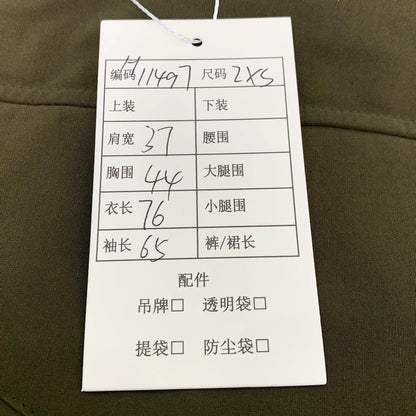 编码 H11497 尺码 2XS
上装 下装
肩宽 37 腰围
胸围 44 大腿围
衣长 76 小腿围
袖长 65 裤/裙长
配件
吊牌□ 透明袋□
提袋□ 防尘袋□